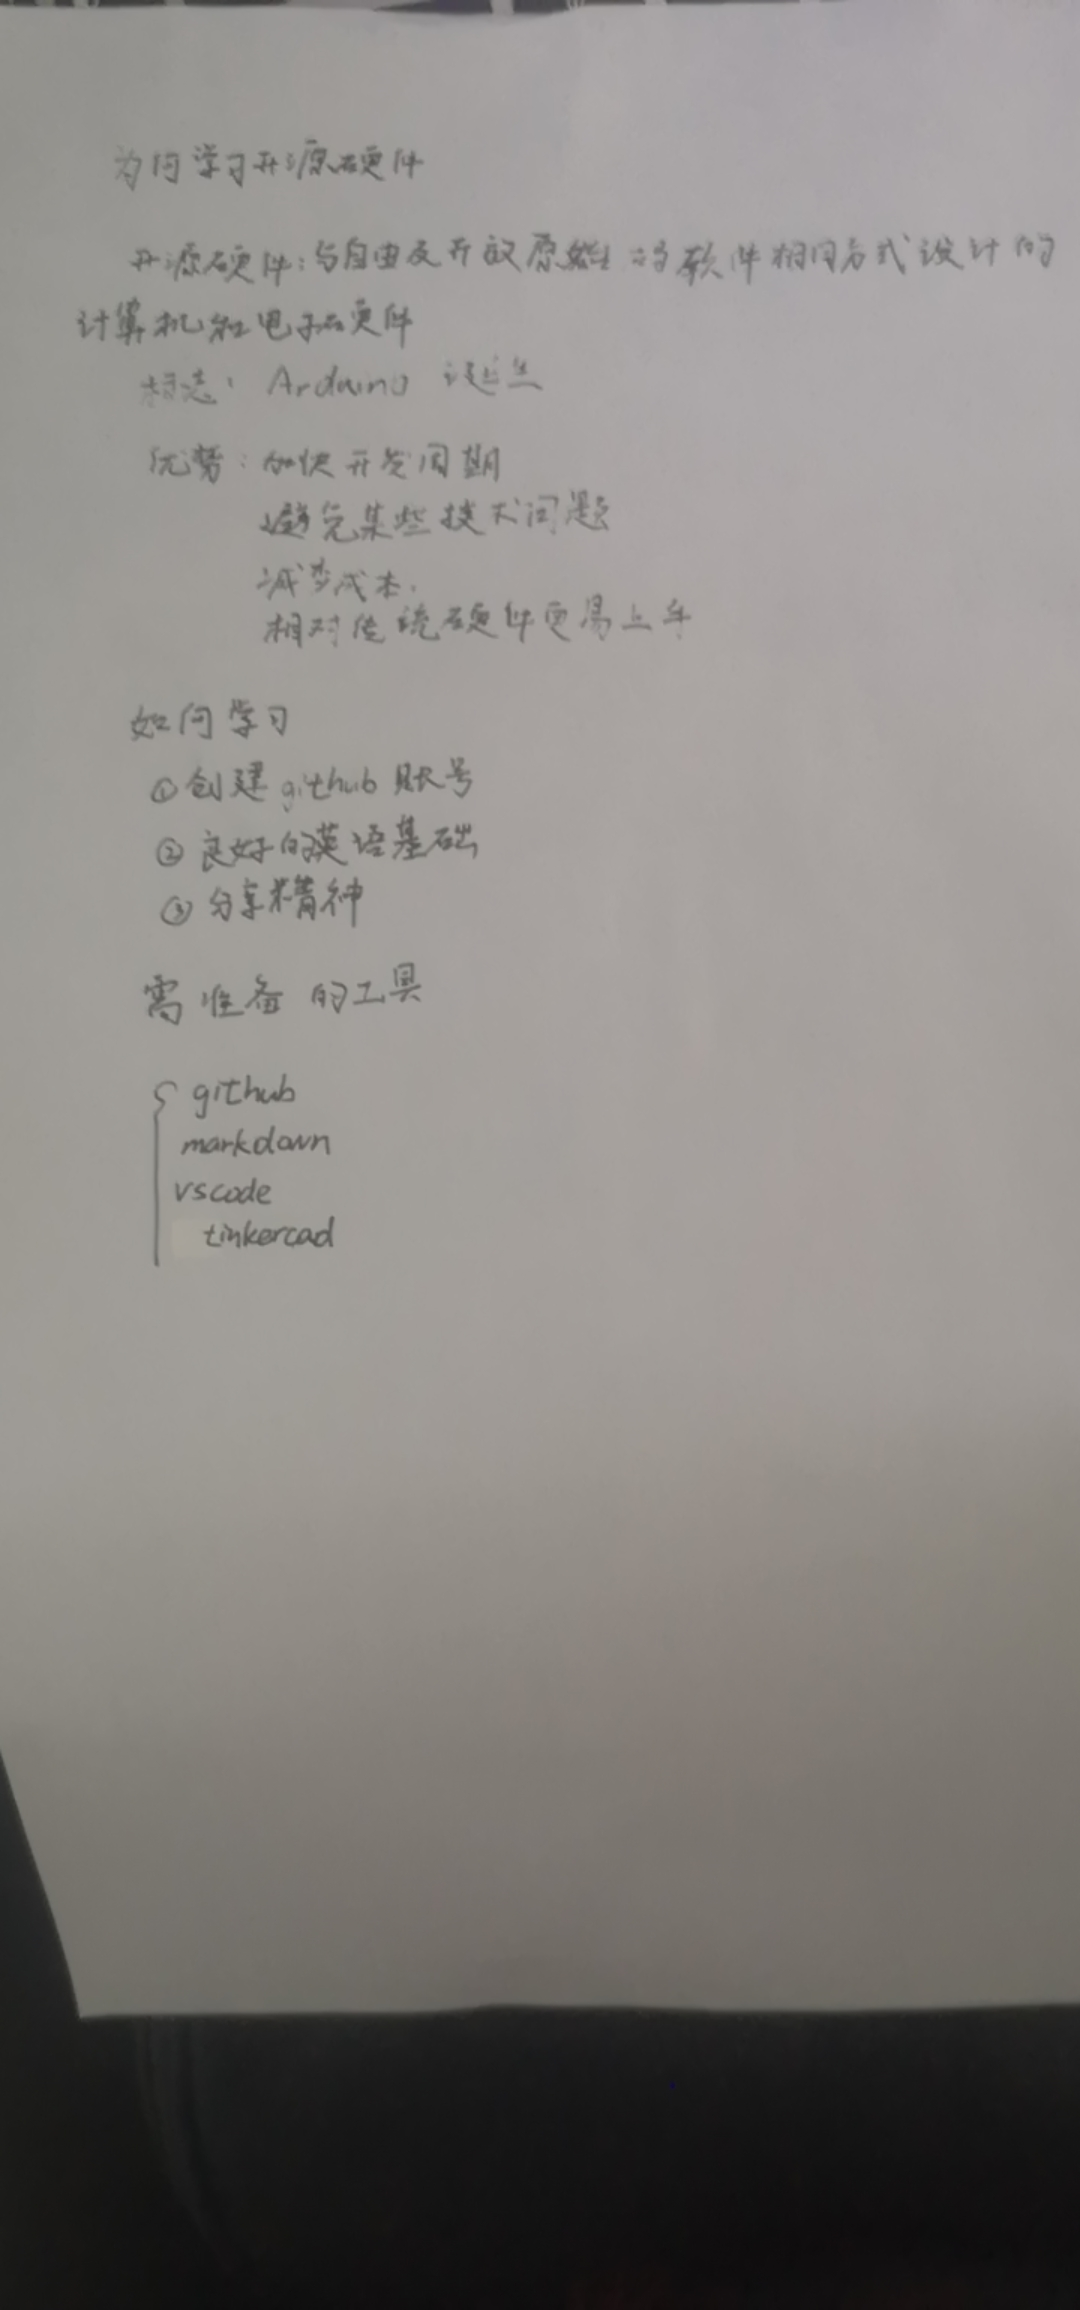 为何学习开源硬件
开源硬件：与自由及开放原始码软件相同方式设计的
计算机和电子硬件
标志：Arduino 诞生
优势：加快开发周期
避免某些技术问题
减少成本．
相对传统硬件更易上手
如何学习
① 创建 github 账号
② 良好的英语基础
③ 分享精神
需准备的工具
github
markdown
vscode
tinkercad